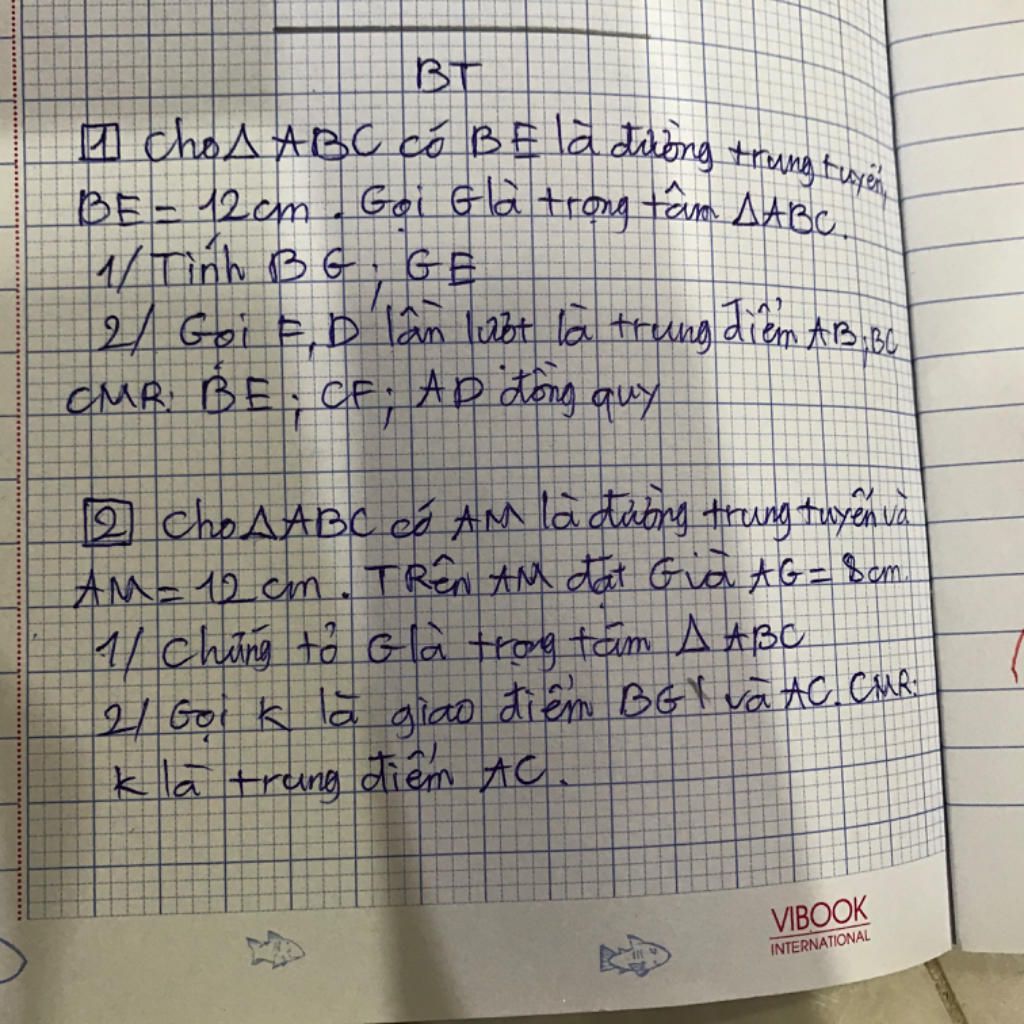 BT
1 Cho Δ ABC có BE là đường trung tuyến,
BE = 12 cm. Gọi G là trọng tâm ΔABC.
1/ Tính BG; GE
2/ Gọi F, D lần lượt là trung điểm AB; BC
CMR: BE; CF; AD đồng quy
2 Cho ΔABC có AM là đường trung tuyến và
AM = 12 cm. TRên AM đặt G và AG = 8cm.
1/ Chứng tỏ G là trọng tâm Δ ABC
2/ Gọi K là giao điểm BG và AC. CMR:
K là trung điểm AC.
VIBOOK
INTERNATIONAL